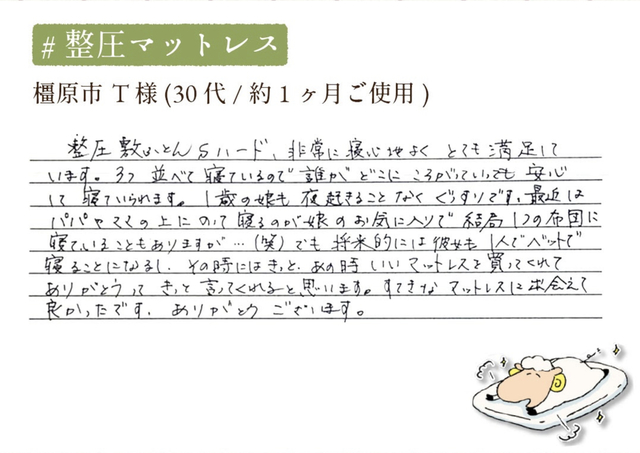 #整圧マットレス
橿原市 T様 (30代 / 約1ヶ月ご使用)
整圧敷ふとんSハード、非常に寝心地よく とても満足して
います。3つ並べて寝ているので誰がどこにころがっていても安心
して寝ていられます。1歳の娘も夜起きることなくぐっすりです。最近は
パパやママの上にのって寝るのが娘のお気に入りで 結局1つの布団に
寝ていることもありますが…(笑)でも将来的には彼女も1人でベットで
寝ることになるし、その時にはきっと、あの時いいマットレスを買ってくれて
ありがとうって きっと言ってくれると思います。すてきなマットレスに出会えて
良かったです。ありがとうございます。